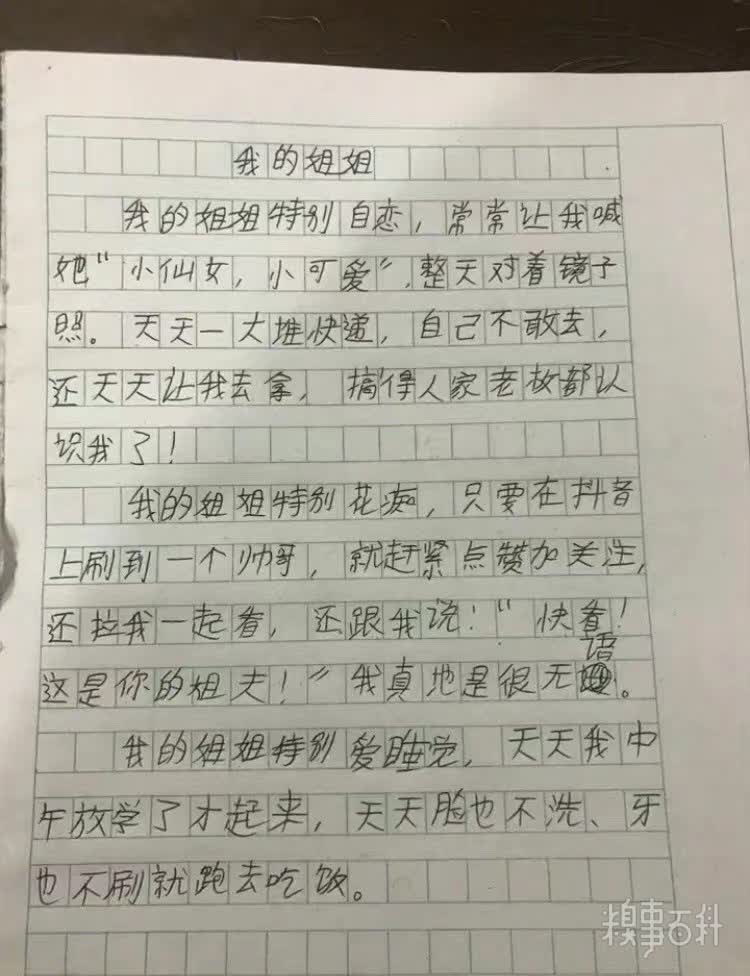 我的姐姐
我的姐姐特别自恋，常常让我喊
她“小仙女，小可爱”，整天对着镜子
照。天天一大堆快递，自己不敢去，
还天天让我去拿，搞得人家老板都认
识我了！
我的姐姐特别花痴，只要在抖音
上刷到一个帅哥，就赶紧点赞加关注，
还拉我一起看，还跟我说！“快看！
这是你的姐夫！”我真地是很无语。
我的姐姐特别爱睡觉，天天我中
午放学了才起来，天天脸也不洗、牙
也不刷就跑去吃饭。
糗事百科